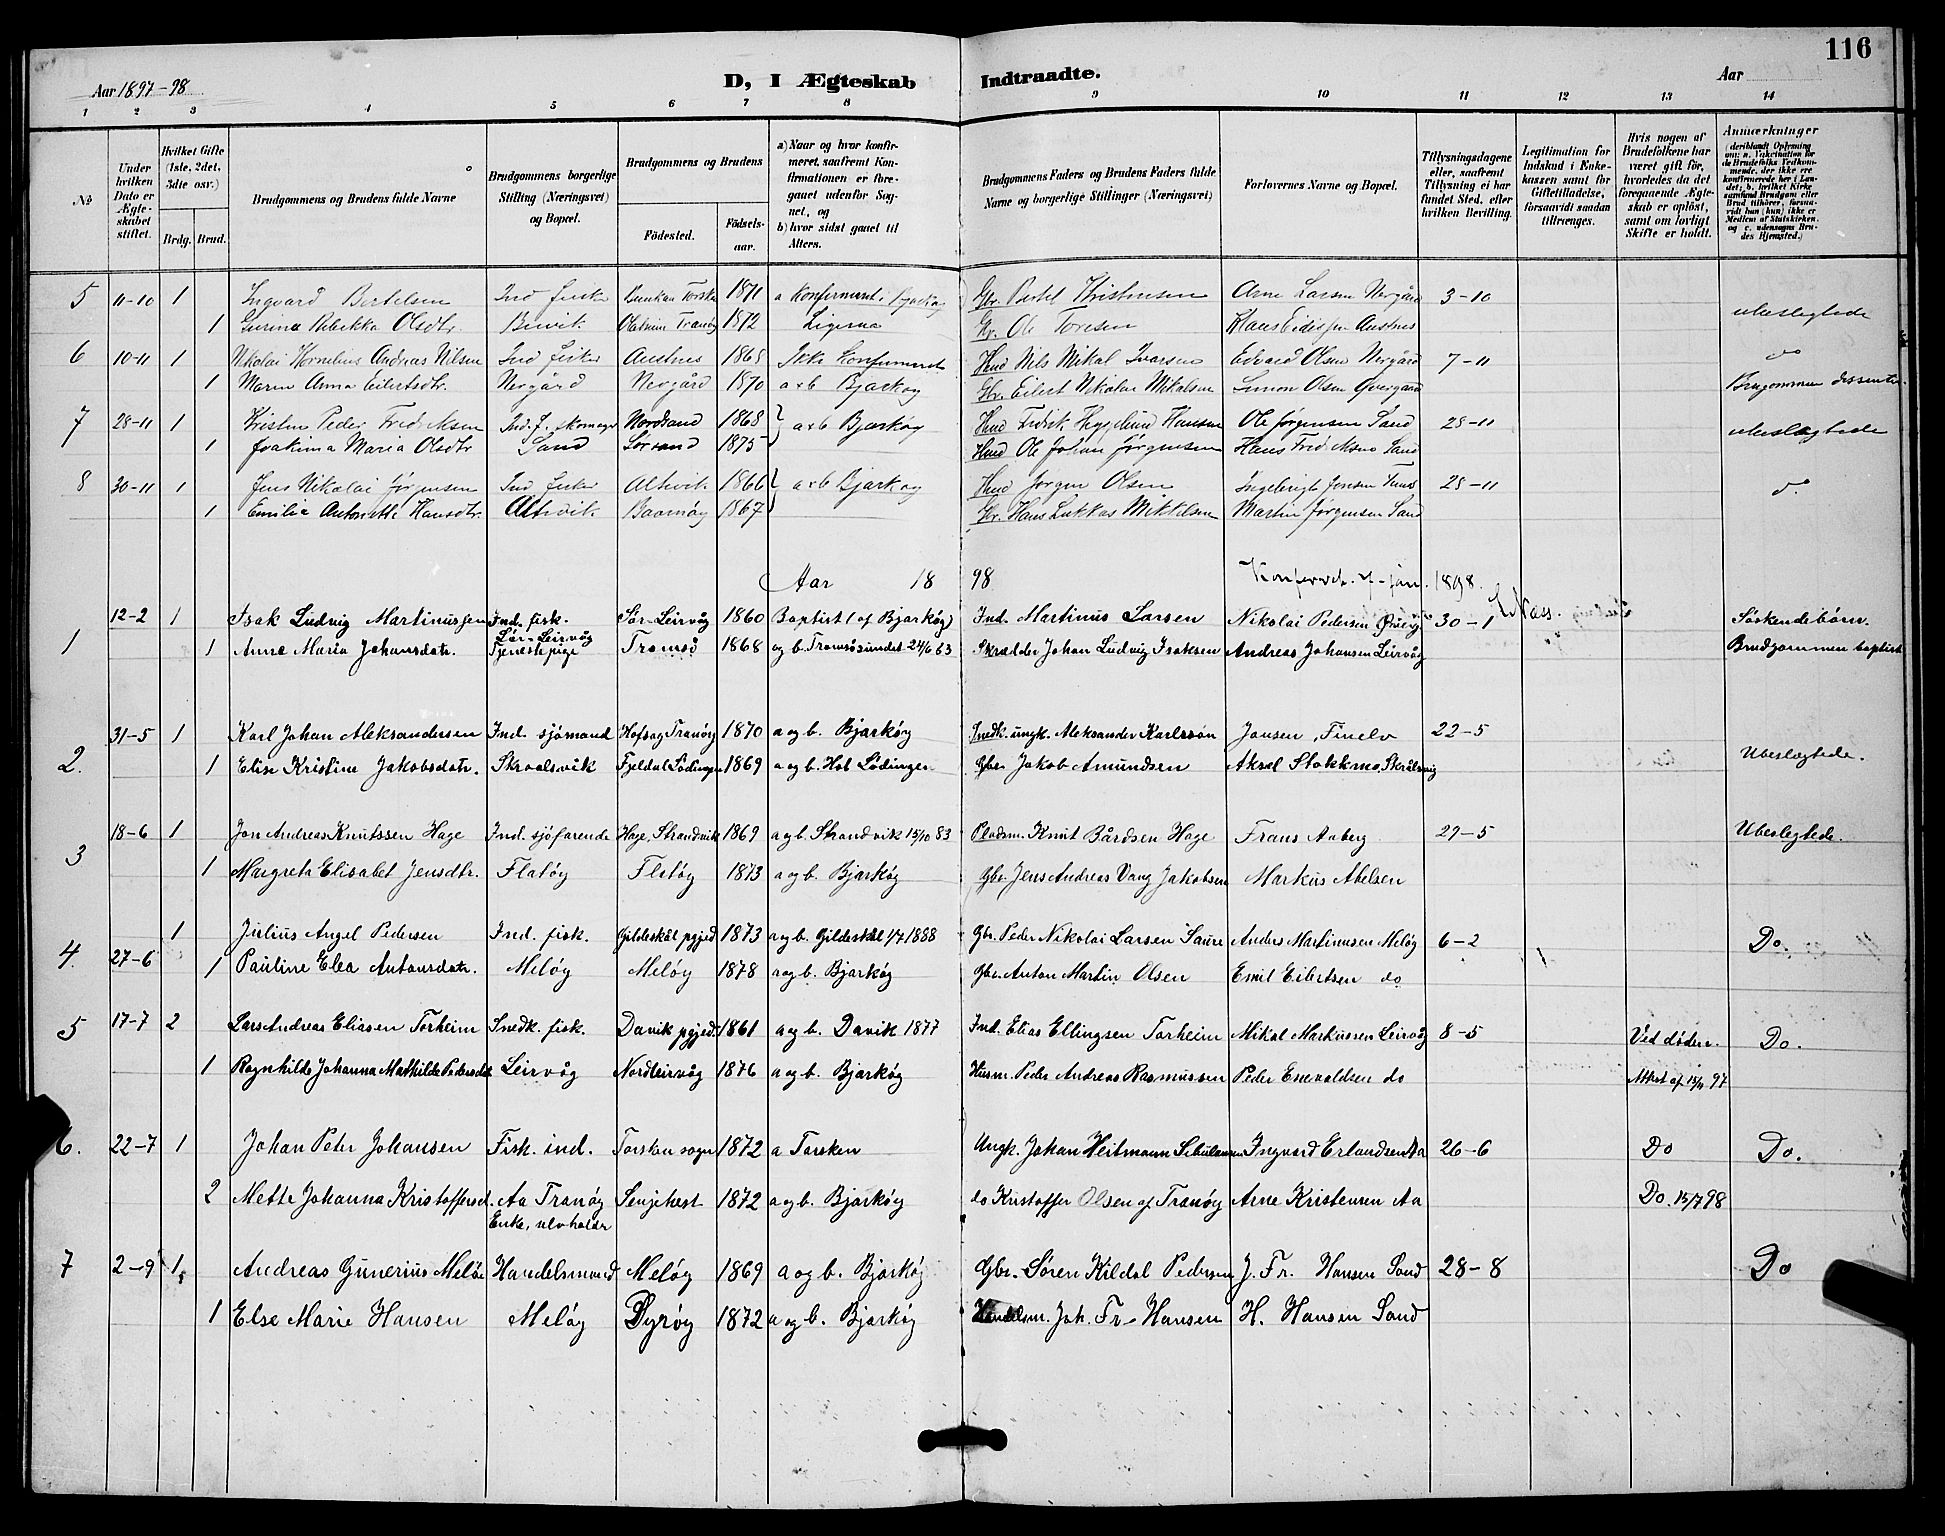 116
Aar 1897-98 D, I Ægteskab Indtraadte. Aar
1 2 3 4 5 6 7 8 9 10 11 12 13 14
№
Under hvilken Dato er Ægteskabet stiftet.
Hvilket Gifte (1ste, 2det, 3die osv.)
Brdg. Brud.
Brudgommens og Brudens fulde Navne
Brudgommens borgerlige Stilling (Næringsvei) og Bopæl.
Brudgommens og Brudens
Fødested. Fødselsaar.
a) Naar og hvor konfirmeret, saafremt Konfirmationen er foregaaet udenfor Sognet, og
b) hvor sidst gaaet til Alters.
Brudgommens Faders og Brudens Faders fulde Navne og borgerlige Stillinger (Næringsvei)
Forlovernes Navne og Bopæl.
Tillysningsdagene eller, saafremt Tillysning ei har fundet Sted, efter hvilken Bevilling.
Legitimation for Indskud i Enkekassen samt for Giftetilladelse, forsaavidt saadan tiltrænges.
Hvis nogen af Brudefolkene har været gift før, hvorledes da det foregaaende Ægteskab er opløst, samt om lovligt Skifte er holdt.
Anmærkninger (deriblandt Oplysning om: a. Vakcination for de Brudefolks Vedkommende, der ikke ere konfirmerede her i Landet; b. hvilket Kirkesamfund Brudgom eller Brud tilhører, forsaavidt han (hun) ikke er Medlem af Statskirken, og c. udensogns Brudes Hjemsted.)
5 11-10 1 Ingvard Bertelsen Ind fisker Torsken 1871 a Konfirmeret i Gbr. Bertel Kristensen Arne Larsen Nergård 3-10
1 Gurina Rebekka Olsdtr. Tranøy 1872 Ligesaa Gbr. Ole Toresen Klaus Austnes ubeslegtede
6 10-11 1 Nikolai Kornelius Andreas Nilsen Ind fisker Austnes 1865 Ikke Konfirmeret Husmd Nils Mikal Ivarsen Edvard Olsen Nergård 7-11 do
1 Maren Anna Eilertsdtr. Nergård Nergård 1870 a & b Bjarkøy Gbr. Eilert Nikolai Mikalsen Simon Olsen Øvergård Brugommen dissenter
7 28-11 1 Kristen Peder Fredriksen Ind. f. skomager Nordsand 1868 a & b Bjarkøy Husmd Fredrik Hegelund Hansen Ole Jørgensen Sand 28-11 ubeslegtede
1 Joakima Maria Olsdtr Sand Sørsand 1875 Husmd Ole Johan Jørgensen Hans Fredriksen Sand
8 30-11 1 Jens Nikolai Jørgensen Ind fisker Altevik 1866 a & b Bjarkøy Husmd Jørgen Olsen Ingebrigt Jensen 28-11 do
1 Emilie Antonette Hansdtr. Altevik 1867 Gbr. Hans Lukkas Mikkelsen Martin Jørgensen Sand
Aar 1898 Konfererede. 7-jan. 1898.
1 12-2 1 Isak Ludvig Martinussen Ind. fisk. Sør-Leirvåg Sør-Leirvåg 1860 Baptist (af Bjarkøy) Ind. Martinus Larsen Nikolai Pedersen 30-1 Søskendebørn.
1 Anne Maria Johansdatr. Tjenestepige Tromsø 1868 og b. Tromsøsundet 24/6 63 Skrædder Johan Ludvig Isaksen Andreas Johansen Leirvåg Brudgommen baptist
2. 31-5 1 Karl Johan Aleksandersen Ind. sjømand Hofsøy Tranøy 1870 a og b. Bjarkøy Snedk. ungk. Aleksander Karlssøn Jansen, Finelv 22-5
1 Elise Kristine Jakobsdatr. Skroalsvik Fjeldal Lødingen 1869 a og b. Hol Lødingen Gbr. Jakob Amundsen Aksel Stokkmo, Skrålsvig Ubeslegtede.
3 18-6 1 Jon Andreas Knutssen Hage Ind. sjøfarende Hage, Strandvik 1869 a og b. Strandvik 15/10 83 Pladsm. Knut Bårdsen Hage Frans Aaberg 29-5 Ubeslegtede.
1 Margrete Elisabet Jensdtr. Flatøy Flatøy 1873 a og b. Bjarkøy Gbr. Jens Andreas Vang Jakobsen Markus Abelsen
4. 27-6 1 Julius Angel Pedersen Ind. fisk. Gildeskål pgjed 1873 a og b. Gildeskål 1/7 1888 Gbr. Peder Nikolai Larsen Saure Anders Martinusen Meløy 6-2 Do.
1 Pauline Elea Antonsdatr. Meløy Meløy 1878 a og b. Bjarkøy Gbr. Anton Martin Olsen Emil Eilertsen do
5 17-7 2 Lars Andreas Eliasen Torheim Snedk. fisk. Davik pgjed. 1861 a og b. Davik 1877 Ind. Elias Ellingsen Torheim Mikal Markussen Leirvåg 8-5 Ved døden. Do.
1 Ragnhilde Johanna Mathilde Pedersdtr Leirvåg Nordleirvåg 1876 a og b. Bjarkøy Husm. Peder Andreas Rasmussen Peder Enevoldsen do Attest af 15/4 97
6. 22-7 1 Johan Peter Johansen Fisk. ind. Torsken sogn 1872 a Torsken Ungk. Johan Heitmann Ingvard Erlandsen Aa 26-6 Do Do.
2 Mette Johanna Kristoffersd. Aa Tranøy Senjehest 1872 a og b. Bjarkøy do Kristoffer Olsen af Tranøy Arne Kristensen Aa Do. 15/7 98
Enke, selvholdr
7 2-9 1 Andreas Gunerius Meløe Handelsmand Meløy 1869 a og b. Bjarkøy Gbr. Søren Kildal Pedersen J. Fr. Hansen Sand 28-8 Do
1 Else Marie Hansen Meløy Dyrøy 1872 a og b. Bjarkøy Handelsm. Joh. Fr. Hansen H. Hansen Sand